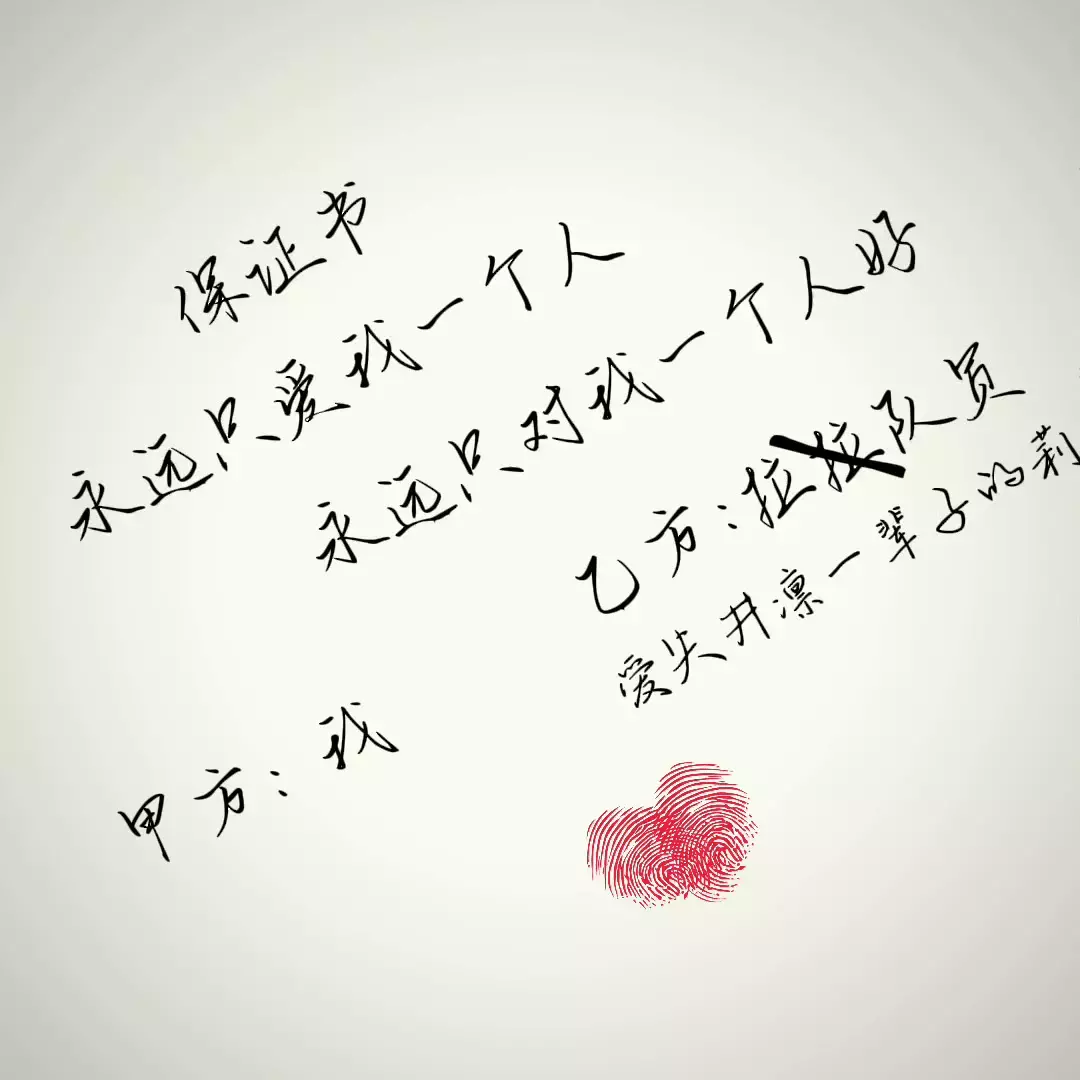 保证书
永远只爱我一个人
永远只对我一个人好
乙方:拉拉队员
爱失井凛一辈子的莉
甲方:我